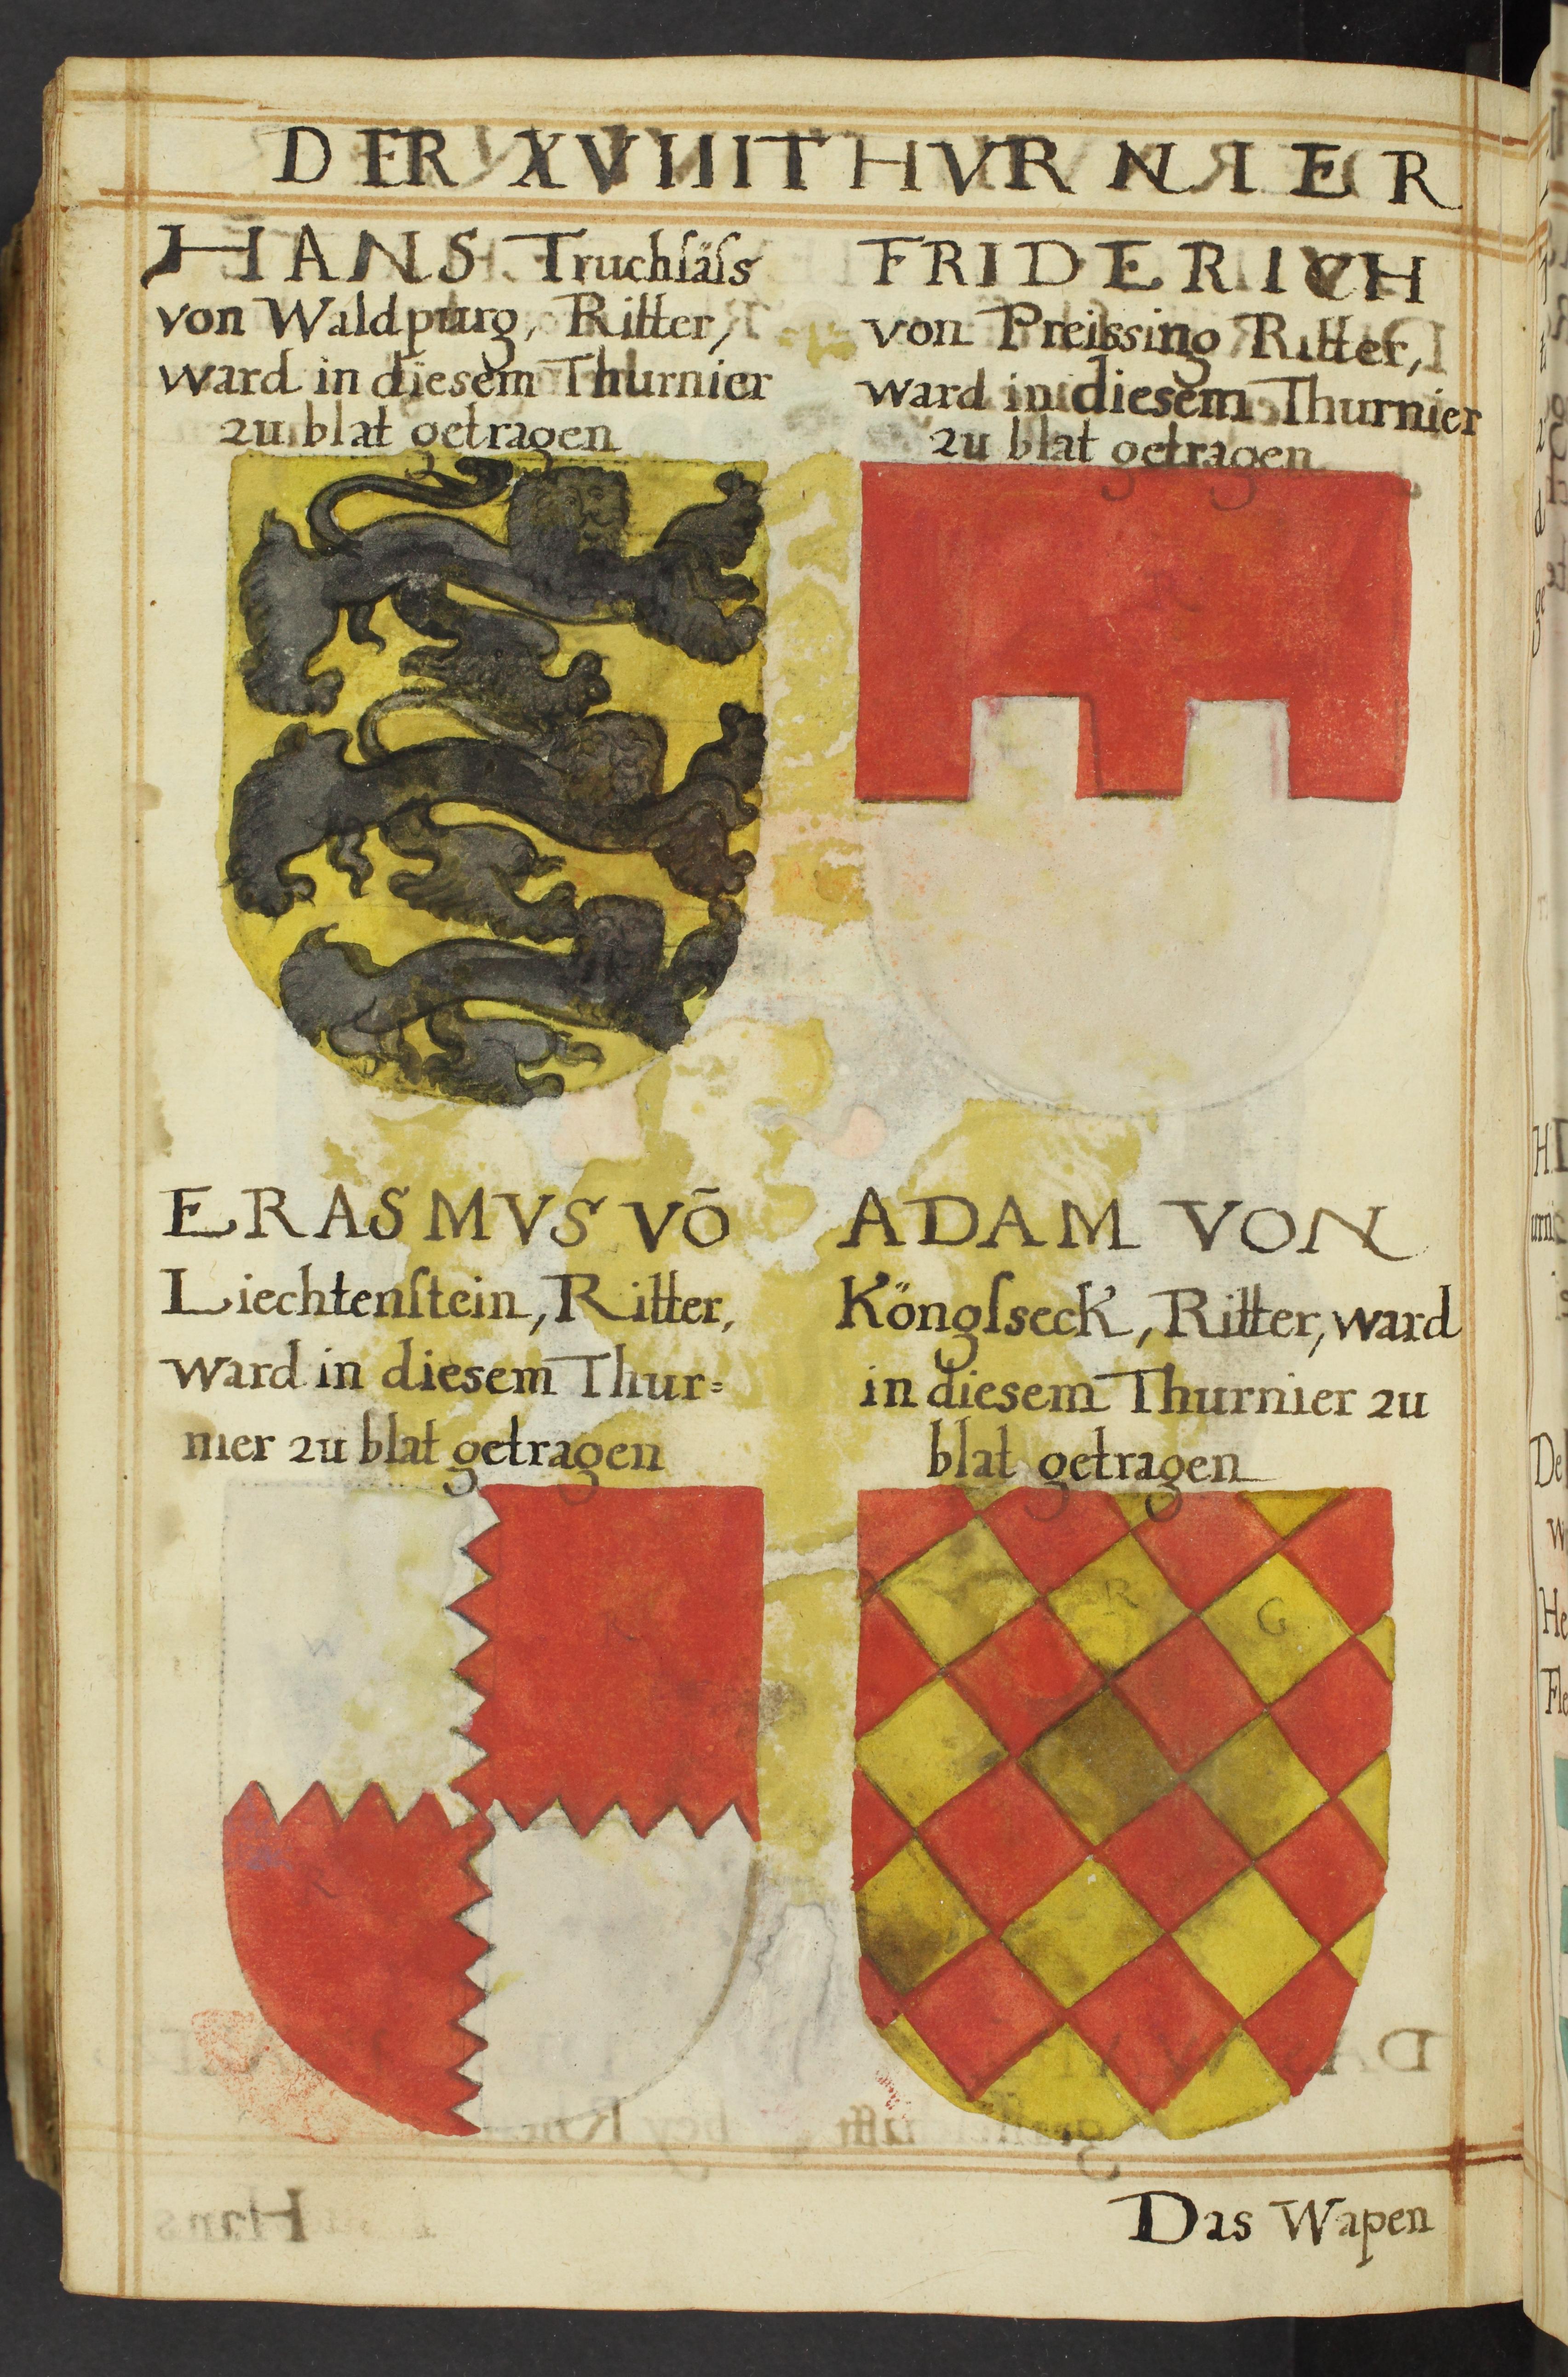 DER XVIIII THVRNIER
HANS Truchſäſs
von Waldpurg, Ritter,
ward in diesem Thurnier
zu blat getragen
FRIDERICH
von Preissing Ritter,
ward in diesem Thurnier
zu blat getragen
ERASMVS VÕ
Liechtenſtein, Ritter,
ward in diesem Thur=
nier zu blat getragen
ADAM VON
Köngſseck, Ritter, ward
in diesem Thurnier zu
blat getragen
R
G
Das Wapen